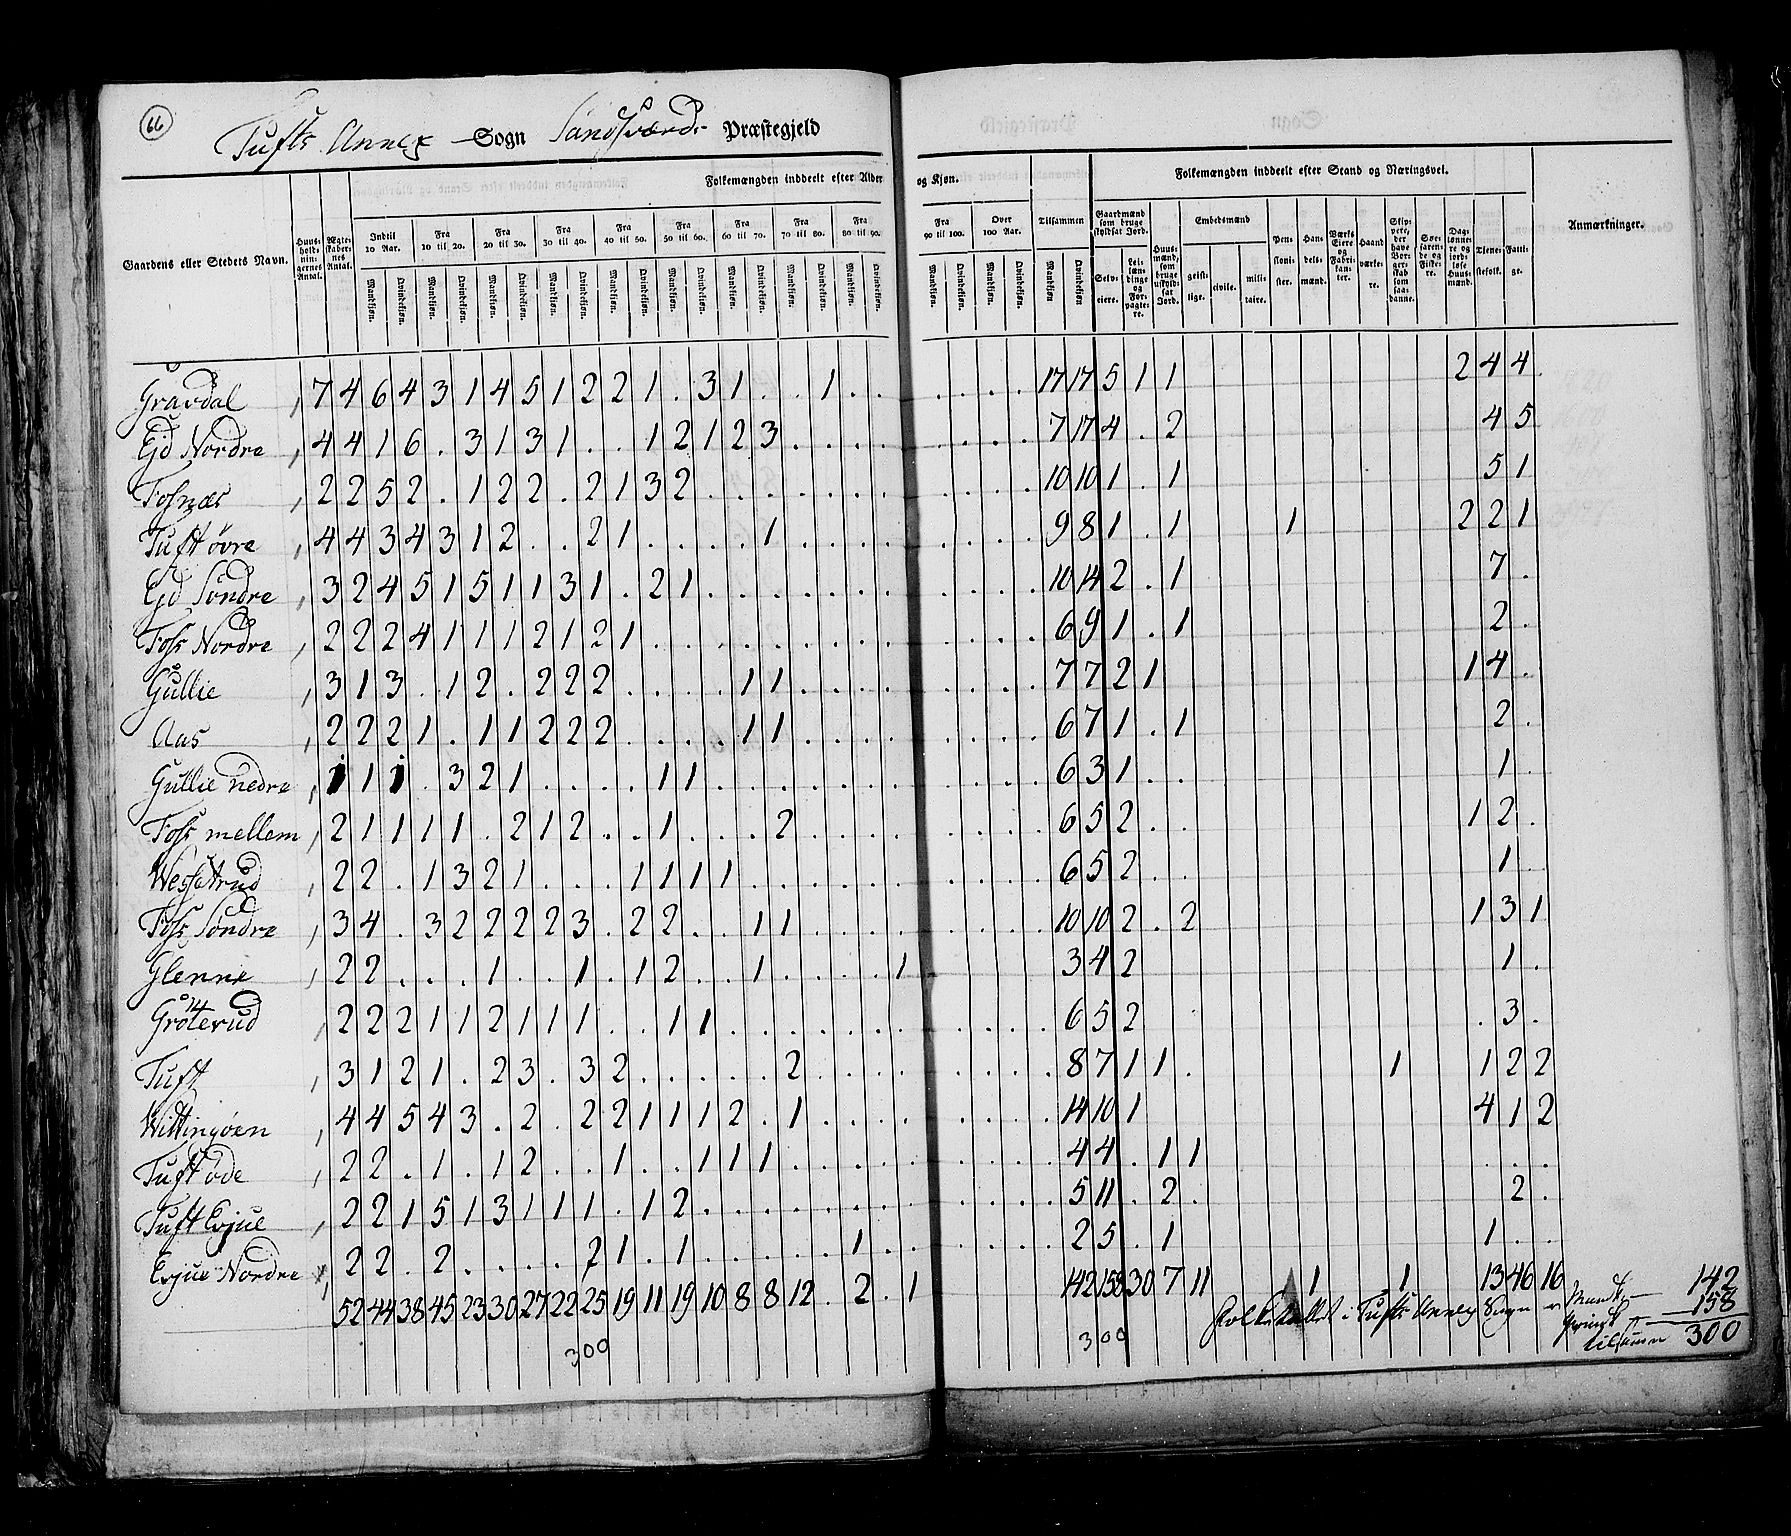 66
Tufts Annex Sogn Sandsværds Præstegjeld
Folkemængden inddeelt efter Alder og Kjøn.
Folkemængden inddeelt efter Stand og Næringsvei.
Gaardens eller Stedets Navn. Huusholdningernes Antal. Ægteskabernes Antal. Indtil 10 Aar. Fra 10 til 20. Fra 20 til 30. Fra 30 til 40. Fra 40 til 50. Fra 50 til 60. Fra 60 til 70. Fra 70 til 80. Fra 80 til 90. Fra 90 til 100. Over 100 Aar. Tilsammen Gaardmænd som bruge skyldsat Jord. Huusmænd, som bruge uskyldsat Jord. Embedsmænd Pensionister. Handelsmænd. Værks Eiere og Fabrikanter. Haandværkere. Skippere, der have Borgerskab som saadanne. Søefarende og Fiskere. Daglønnere og jordløse Huusmænd. Tjenestefolk. Fattige. Anmærkninger.
Mandkjøn. Qvindekjøn. Mandkjøn. Qvindekjøn. Mandkjøn. Qvindekjøn. Mandkjøn. Qvindekjøn. Mandkjøn. Qvindekjøn. Mandkjøn. Qvindekjøn. Mandkjøn. Qvindekjøn. Mandkjøn. Qvindekjøn. Mandkjøn. Qvindekjøn. Mandkjøn. Qvindekjøn. Mandkjøn. Qvindekjøn. Mandkjøn Qvindekjøn Selveiere. Leilændinge og Forpagtere. geistlige. civile. militaire.
Gravdal , 7 4 6 4 3 1 4 5 1 2 2 1 . 3 1 . . 1 . . . . . . 17 17 5 1 1 2 4 4
Ejd Nordre , 4 4 1 6 . 3 1 3 1 . . 1 2 1 2 3 . . . . . . . . 7 17 4 . 2 4 5
Fosnæs , 2 2 5 2 . 1 2 2 . 2 1 3 2 . . . . . . . . . . . 10 10 1 . 1 5 1
Tuft øvre , 4 4 3 4 3 1 2 . . 2 1 . . . . 1 . . . . . . . . 9 8 1 . 1 1 2 2 1
Ejd Søndre , 3 2 4 5 1 5 1 1 3 1 . 2 1 . . . . . . . . . . . 10 14 2 . 1 7 .
Foss Nordre , 2 2 2 4 1 1 1 2 1 2 1 . . . . . . . . . . . . . 6 9 1 . 1 2 .
Gullie , 3 1 3 . 1 2 . 2 2 2 . . . . 1 1 . . . . . . . . 7 7 2 1 1 4 .
Aas , 2 2 2 1 . 1 1 2 2 2 . . . . 1 1 . . . . . . . . 6 7 1 . 1 2 .
Gullie nedre , 1 1 1 . 3 2 1 . . . . 1 1 . . . . . . . . . . . 6 3 1 . . 1 .
Foss mellem , 2 1 1 1 1 . 2 1 2 . . 1 . . . 2 . . . . . . . . 6 5 2 . . 1 2 .
Wessetrud , 2 2 . 1 3 2 1 . . . 1 1 1 1 . . . . . . . . . . 6 5 2 . . 1 .
Foss Søndre , 3 4 . 3 2 2 2 2 3 . 2 2 . . 1 1 . . . . . . . . 10 10 2 . 2 1 3 1
Glenne , 2 2 . . . 1 . . 1 . 1 2 . . 1 . . . . 1 . . . . 3 4 2 1 .
Grøterud , 2 2 2 1 1 2 1 1 1 . . 1 1 . . . . . . . . . . . 6 5 2 . 3 .
Tuft , 3 1 2 1 . 2 3 . 3 2 . . . . . 2 . . . . . . . . 8 7 1 1 . 1 1 2 2
Wittingøen , 4 4 5 4 3 . 2 . 2 2 1 1 1 2 . 1 . . . . . . . . 14 10 1 4 1 2
Tuft øde , 2 2 . 1 . 1 2 . . 1 . . 1 1 1 . . . . . . . . . 4 4 . 1 1 . . .
Tuft Evjue , 2 2 1 5 1 3 1 1 1 . 1 2 . . . . . . . . . . . . 5 11 . 2 . 2 .
Evjue Nordre , 2 2 . 2 . . . . 2 1 . 1 . . . . . 1 . . 2 5 . 1 1 . .
52 44 38 45 23 30 27 22 25 19 11 19 10 8 8 12 . 2 . 1 142 158 30 7 11 1 1 13 46 16
Folketallet i Tufts Annex Sogn er Mandk. — 142
Qvindk — 158
tilsammen 300
300 300